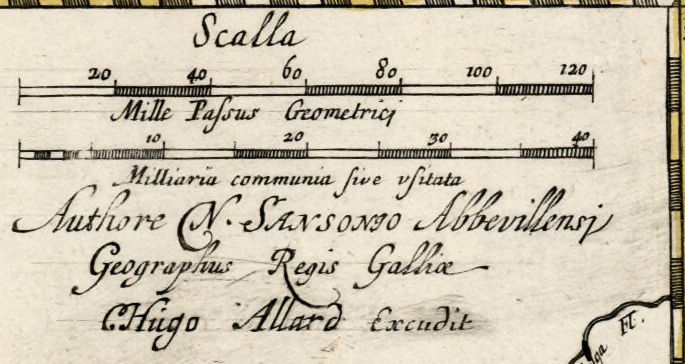 Scalla
20 40 60 80 100 120
Mille Paſsus Geometricj
10 20 30 40
Milliaria communia ſive vſitata
Authore N. SANSONIO Abbevillensj
Geographus Regis Galliæ
CHugo Allard Excudit
Fl.